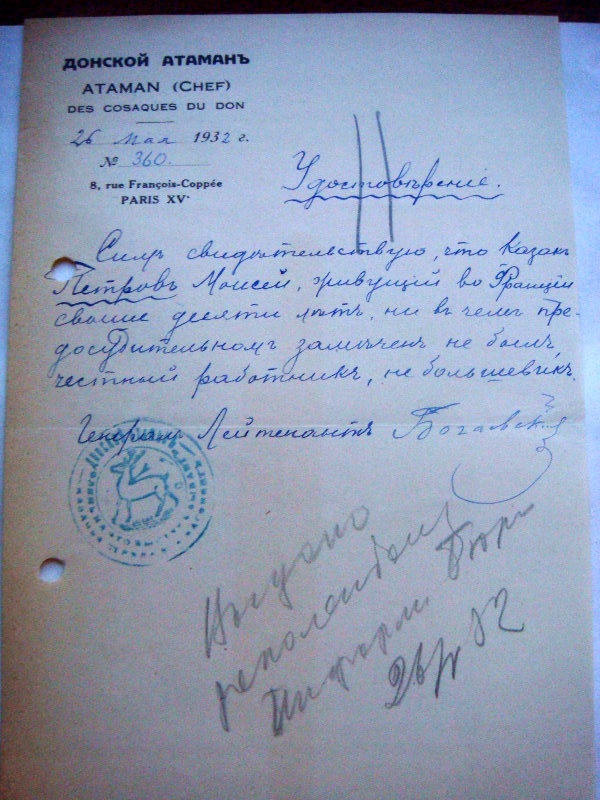 ДОНСКОЙ АТАМАНЪ
ATAMAN (CHEF)
DES COSAQUES DU DON
26 мая 1932 г.
№ 360.
8, rue François-Coppée
PARIS XVᵉ
Удостовѣреніе.
Симъ свидѣтельствую, что казакъ
Петровъ Моисей, живущій во Франціи
свыше десяти лѣтъ, ни въ чемъ пре-
досудительномъ замѣченъ не былъ,
честный работникъ, не большевикъ.
Генералъ Лейтенантъ Богаевскій
Выдано
Информ. Бюро
26/V 32